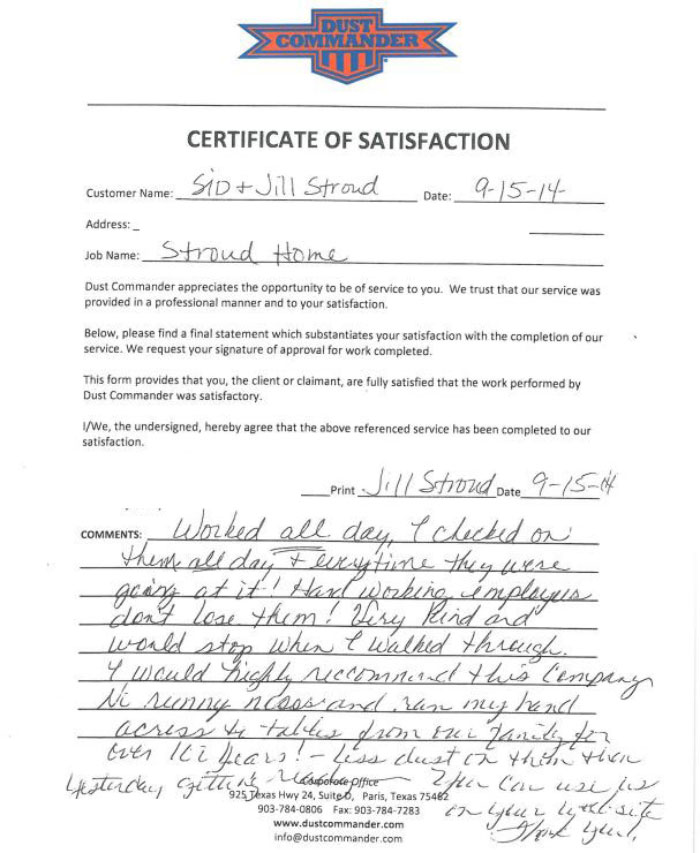 DUST
COMMANDER
CERTIFICATE OF SATISFACTION
Customer Name: SiD + Jill Stroud Date: 9-15-14
Address:
Job Name: Stroud Home
Dust Commander appreciates the opportunity to be of service to you. We trust that our service was
provided in a professional manner and to your satisfaction.
Below, please find a final statement which substantiates your satisfaction with the completion of our
service. We request your signature of approval for work completed.
This form provides that you, the client or claimant, are fully satisfied that the work performed by
Dust Commander was satisfactory.
I/We, the undersigned, hereby agree that the above referenced service has been completed to our
satisfaction.
Print Jill Stroud Date 9-15-14
COMMENTS: Worked all day, I checked on
them all day + everytime they were
going at it! Hard working employees
don't lose them! Very Kind and
would stop when I walked through.
I would highly recommend this Company
runny noses and ran my hand
across tables from our family for
over years! - Less dust on them then
Yesterday getting ready You Can use us
Corporate Office
on your web-site
925 Texas Hwy 24, Suite D, Paris, Texas 75462
903-784-0806 Fax: 903-784-7283
Thank You!
www.dustcommander.com
info@dustcommander.com